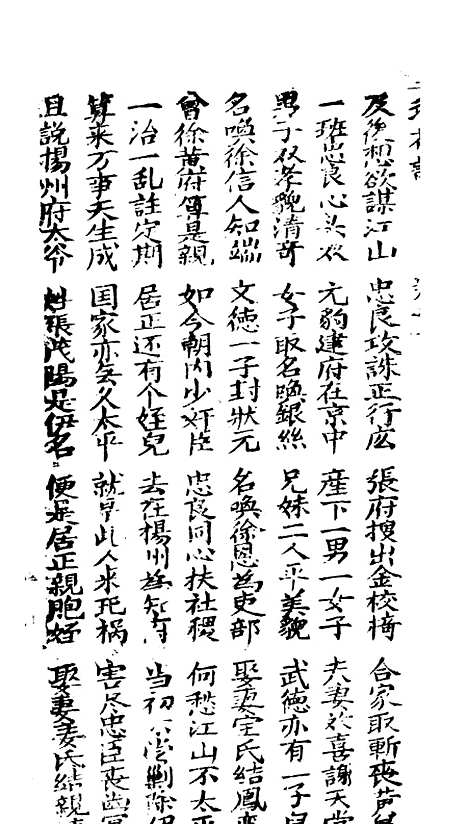 後想欲謀江山 忠良攻誅正行 張府搜出金校椅 合家取斬喪黃
一班忠良心头欢 元豹建府在京中 産下一男一女子 夫妻欢喜謝天
男子双孝貌清奇 女子取名喚銀絲 兄妹二人平美貌 武德亦有一子
名喚徐信人知端 文德一子封狀元 名喚徐恩為吏部 娶妻宝氏結鳳
曾徐黃府俱是親 如今朝内少奸臣 忠良同心扶社稷 何愁江山不太平
一治一乱註定期 居正还有个姪兒 去在楊州為知府 当初剿除
算来万事天生成 国家亦無久太平 就早此人来犯祸 害尽忠臣喪幽冥
且說揚州府太爷 姓張茂陽是伊名 便是居正親胞姪 娶妻姜氏結親